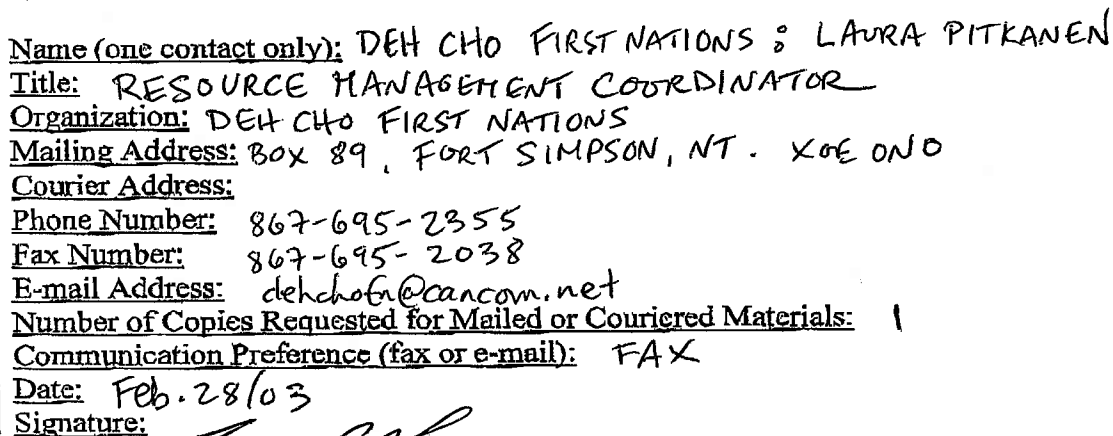 Name (one contact only): DEH CHO FIRST NATIONS : LAURA PITKANEN
Title: RESOURCE MANAGEMENT COORDINATOR
Organization: DEH CHO FIRST NATIONS
Mailing Address: BOX 89, FORT SIMPSON, NT. X0E 0N0
Courier Address:
Phone Number: 867-695-2355
Fax Number: 867-695-2038
E-mail Address: dehchofn@cancom.net
Number of Copies Requested for Mailed or Couriered Materials: 1
Communication Preference (fax or e-mail): FAX
Date: Feb. 28/03
Signature: